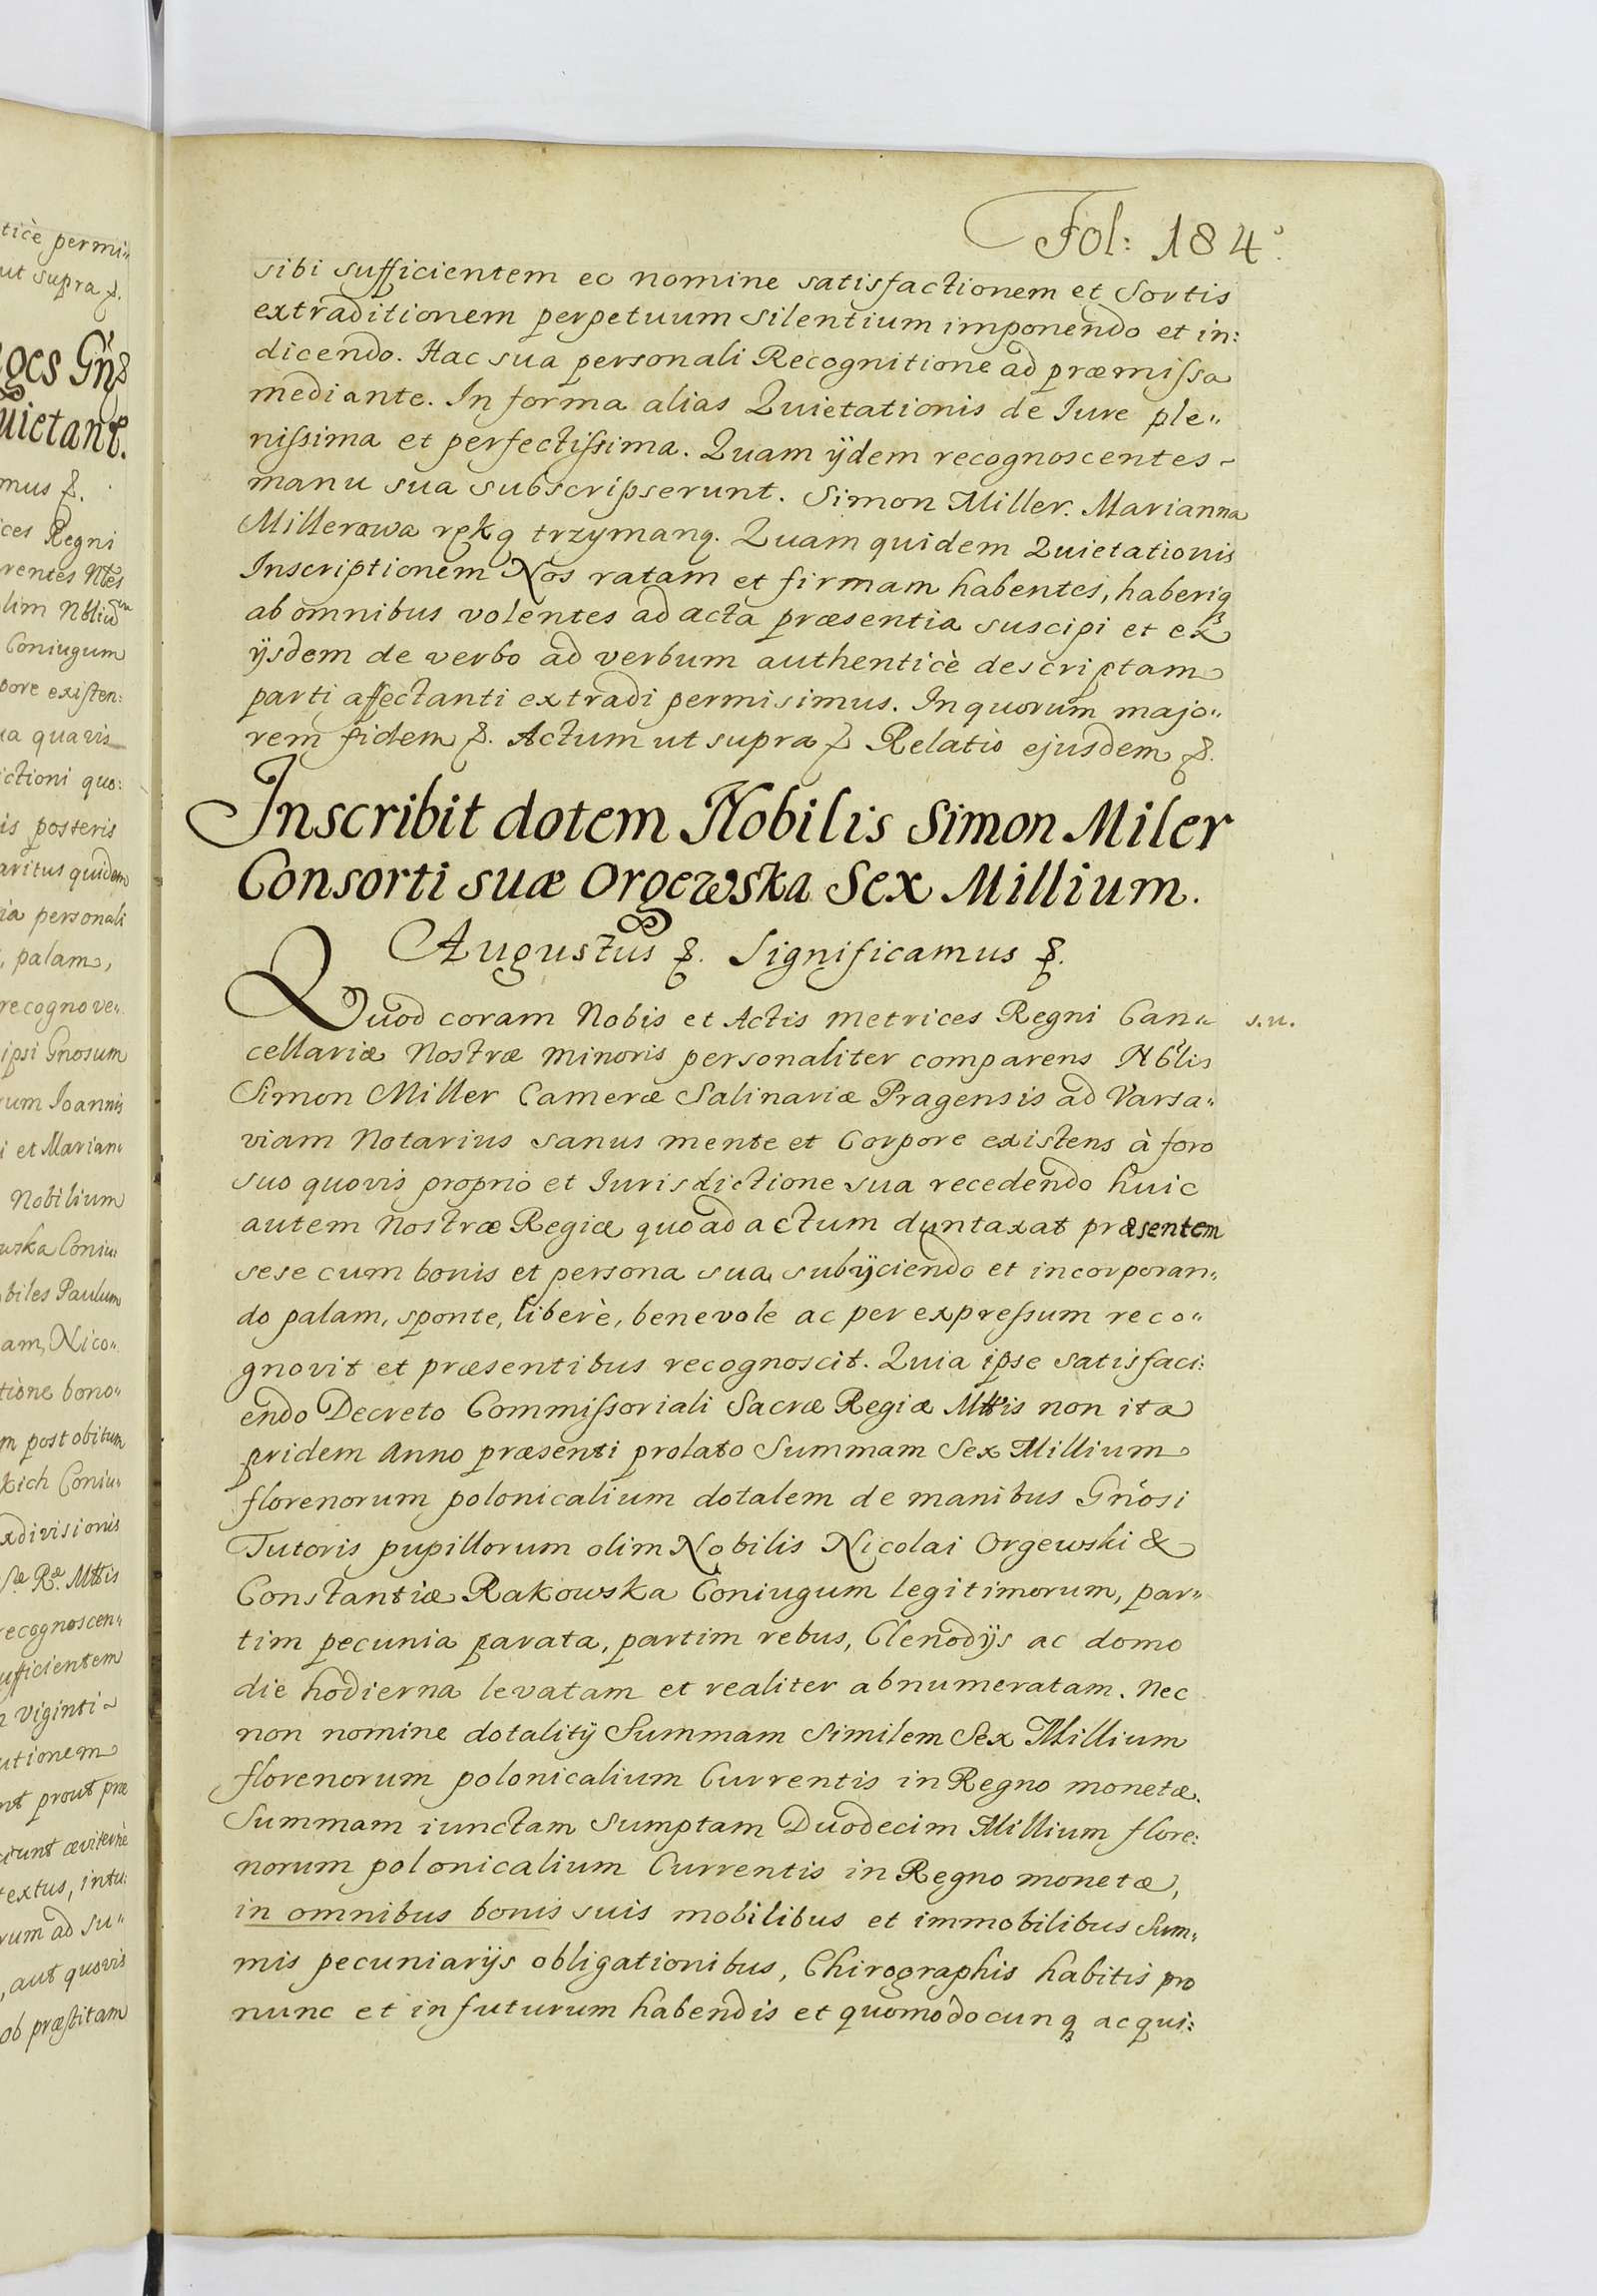 Fol: 184
sibi sufficientem eo nomine satisfactionem et Sortis
extraditionem perpetuum silentium imponendo et in:
dicendo. Hac sua personali Recognitione ad præmissa
mediante. In forma alias Quietationis de Iure ple„
nissima et perfectissima. Quam ijdem recognoscentes
manu sua subscripserunt. Simon Miller. Marianna
Millerowa ręką trzymaną. Quam quidem Quietationis
Inscriptionem Nos ratam et firmam habentes, haberiq₃
ab omnibus volentes ad acta præsentia suscipi et ex
ijsdem de verbo ad verbum authenticè descriptam
parti affectanti extradi permisimus. In quorum majo„
rem fidem &. Actum ut supra & Relatio ejusdem &.
Inscribit dotem Nobilis Simon Miler
Consorti suæ Orgewska Sex Millium.
Augustus &. Significamus &.
Quod coram Nobis et Actis metrices Regni Can„ s.n.
cellariæ Nostræ minoris personaliter comparens Nblis
Simon Miller Cameræ Salinariæ Pragensis ad Varsa„
viam Notarius sanus mente et Corpore existens à foro
suo quovis proprio et Iurisdictione sua recedendo huic
autem Nostræ Regiæ quo ad actum duntaxat præsentem
sese cum bonis et persona sua subijciendo et incorporan„
do palam, sponte, liberè, benevole ac per expressum reco„
gnovit et præsentibus recognoscit. Quia ipse satisfaci:
endo Decreto Commissoriali Sacræ Regiæ Mttis non ita
pridem Anno præsenti prolato Summam Sex Millium
florenorum polonicalium dotalem de manibus Gnosi
Tutoris pupillorum olim Nobilis Nicolai Orgewski &
Constantiæ Rakowska Coniugum legitimorum, par„
tim pecunia parata, partim rebus, Clenodijs ac domo
die hodierna levatam et realiter abnumeratam. Nec
non nomine dotalitij Summam similem Sex Millium
florenorum polonicalium Currentis in Regno monetæ.
Summam iunctam sumptam Duodecim Millium flore:
norum polonicalium Currentis in Regno monetæ,
in omnibus bonis suis mobilibus et immobilibus Sum„
mis pecuniarijs obligationibus, Chirographis habitis pro
nunc et in futurum habendis et quomodocunq₃ acqui: